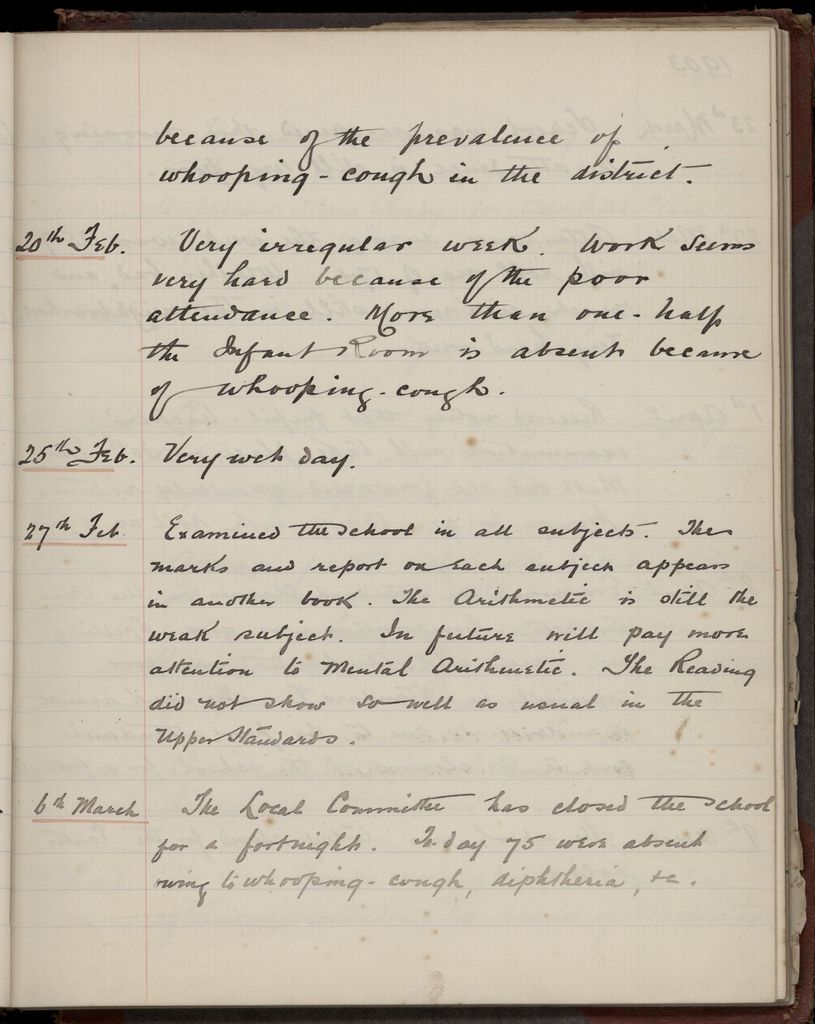 because of the prevalence of
whooping-cough in the district.
20th Feb. Very irregular week. Work seems
very hard because of the poor
attendance. More than one-half
the Infant Room is absent because
of whooping-cough.
25th Feb. Very wet day.
27th Feb Examined the school in all subjects. The
marks and report on each subject appears
in another book. The Arithmetic is still the
weak subject. In future will pay more
attention to Mental Arithmetic. The Reading
did not show so well as usual in the
Upper Standards.
6th March The Local Committee has closed the school
for a fortnight. To day 75 were absent
owing to whooping-cough, diphtheria, &c.